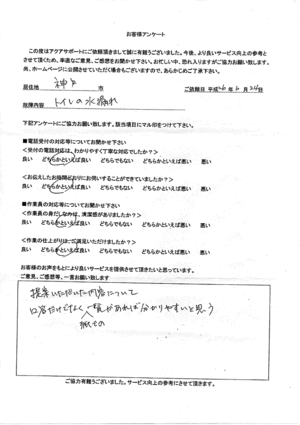 お客様アンケート
この度はアクアサポートにご依頼頂きまして誠に有難うございました。今後、より良いサービス向上の参考と
させて頂くため、率直なご意見、ご感想をお聞かせ下さい。お忙しい中、恐れ入りますがご協力お願い致します。
尚、ホームページに公開させていただく場合もございますので、あらかじめご了承下さい。
居住地 神戸 市 ご依頼日 平成26年6月24日
故障内容 トイレの水漏れ
下記アンケートにご協力お願い致します。該当項目にマル印をつけて下さい。
■電話受付の対応等についてお聞かせ下さい
<受付の電話対応は、わかりやすく丁寧な対応でしたか?>
良い どちらかといえば良い どちらでもない どちらかといえば悪い 悪い
<お伝えしたお約束時間どおりにお伺いすることができていましたか?>
良い どちらかといえば良い どちらでもない どちらかといえば悪い 悪い
■作業員の対応等についてお聞かせ下さい
<作業員の身だしなみは、清潔感がありましたか?>
良い どちらかといえば良い どちらでもない どちらかといえば悪い 悪い
<作業の仕上がりは、ご満足いただけましたか?>
良い どちらかといえば良い どちらでもない どちらかといえば悪い 悪い
お客様のお声をもとにより良いサービスを提供させて頂きたいと思っています。
ご意見、ご感想等、一言お願い致します
提案いただいた内容について
口答だけでなく一覧があれば分かりやすいと思う
紙での
ご協力有難うございました。サービス向上の参考にさせて頂きます。